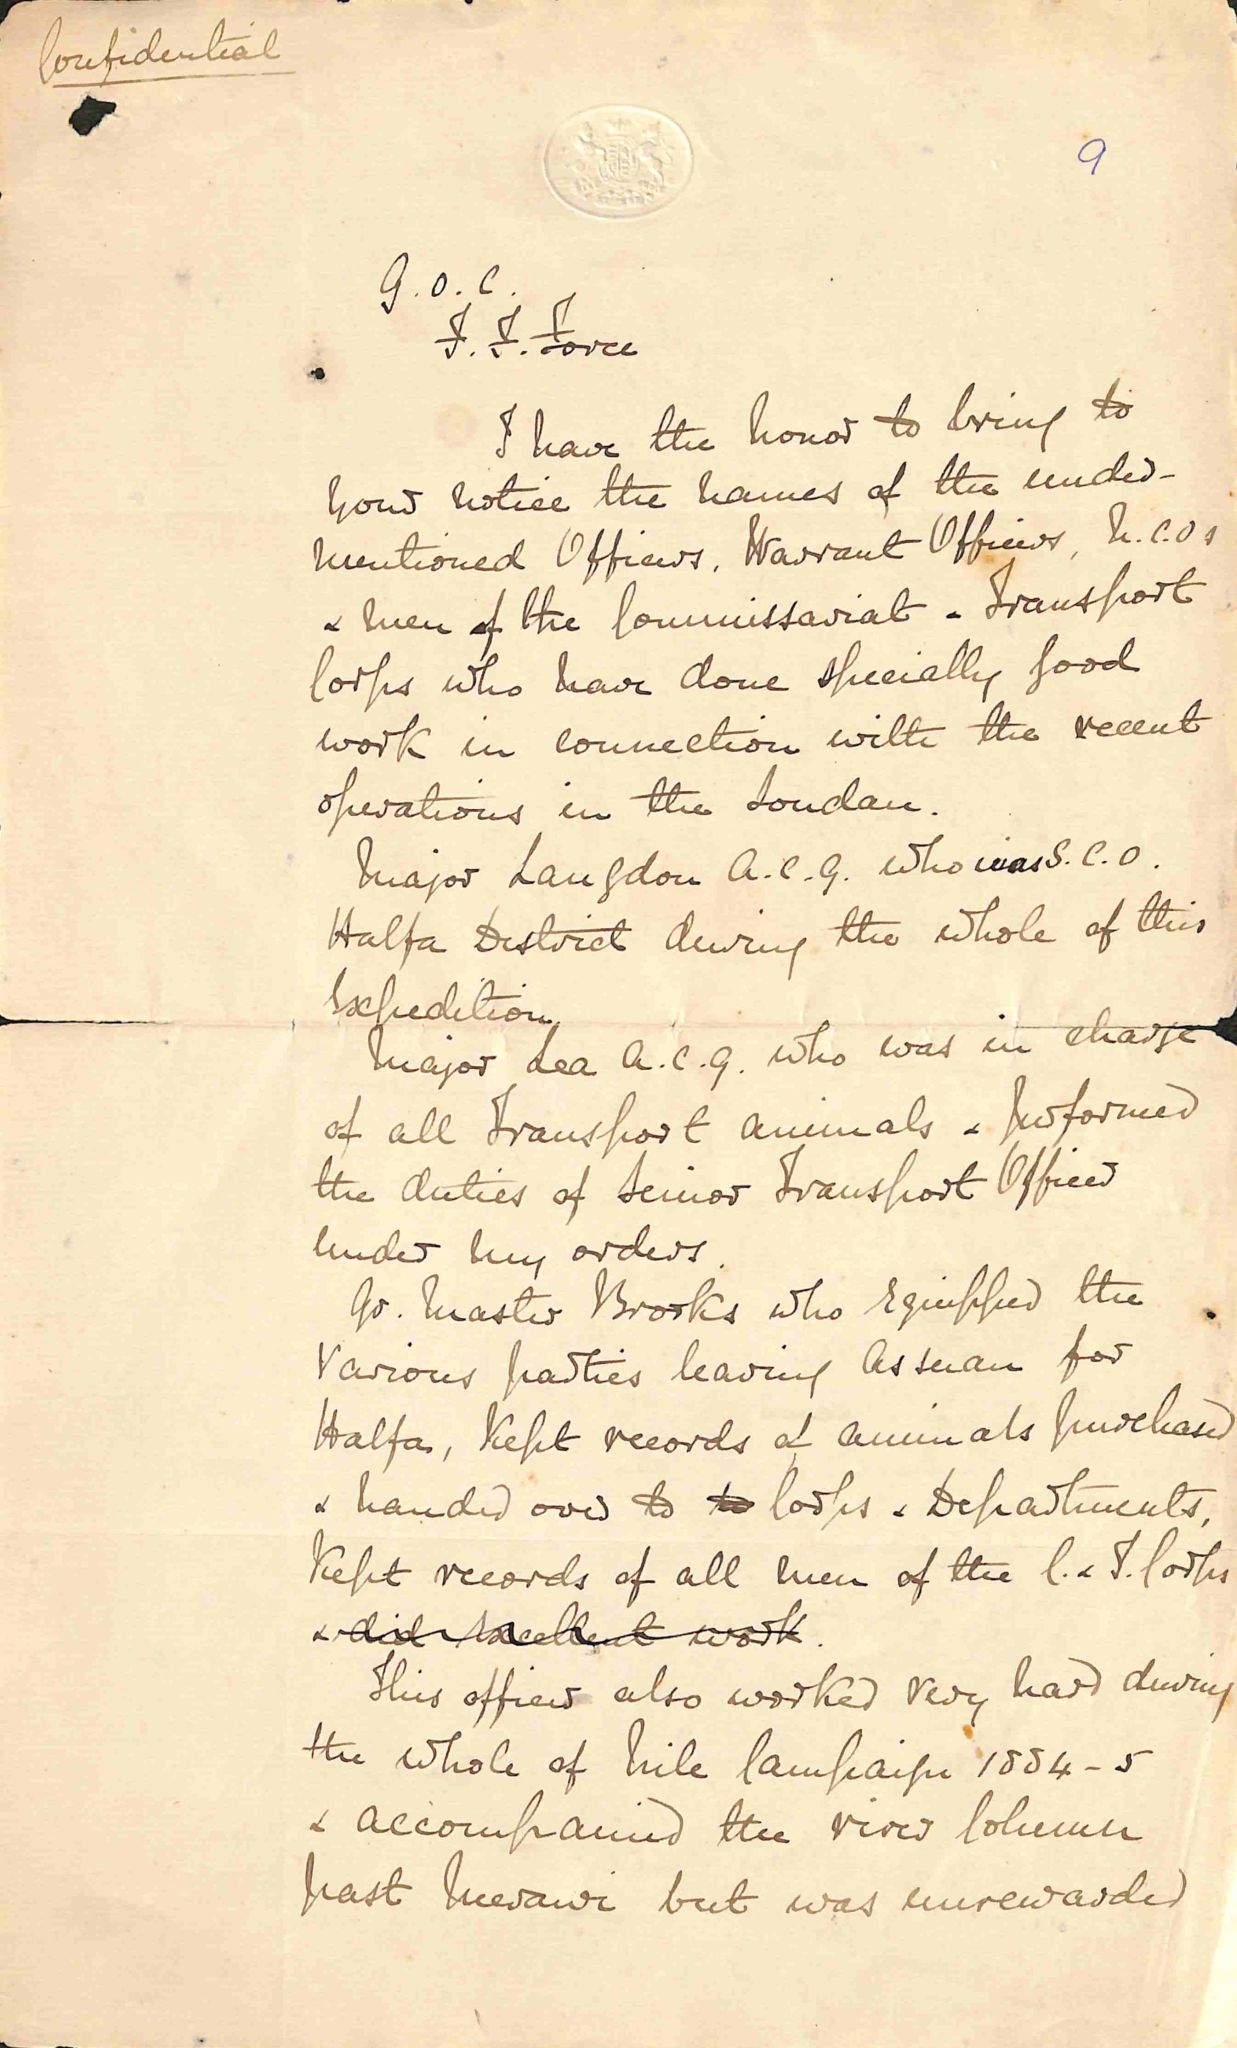 Confidential
9
G.O.C.
F.F. Force
I have the honor to bring to
your notice the names of the under-
mentioned Officers, Warrant Officers, N.C.Os
& men of the Commissariat & Transport
Corps who have done specially good
work in connection with the recent
operations in the Soudan.
Major Langdon A.C.G. who was S.C.O.
Halfa District during the whole of this
Expedition.
Major Lea A.C.G. who was in charge
of all Transport animals & performed
the duties of Senior Transport Officer
under my orders.
Qr. Master Brooks who equipped the
various parties leaving Assuan for
Halfa, kept records of animals purchased
& handed over to to Corps & Departments,
kept records of all men of the C. & T. Corps
& did excellent work.
This officer also worked very hard during
the whole of Nile Campaign 1884-5
& accompanied the river Column
past Merawi but was unrewarded